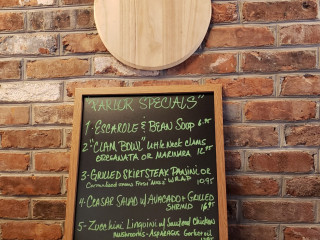 "PARLOR SPECIALS"
1-ESCAROLE & BEAN SOUP 6.95
2-"CLAM BOWL" Little Neck clams
OREGANATA OR MARINARA 12.95
3-GRILLED SKIRTSTEAK PANINI OR
Caramelized onions Fresh "Mozz" WRAP 10.95
4-CEASAR SALAD w/ AVACADO + GRILLED
SHRIMP 16.95
5-Zucchini Linguini w/ Sauteed Chicken
Mushrooms-Asparagus Garlic oil